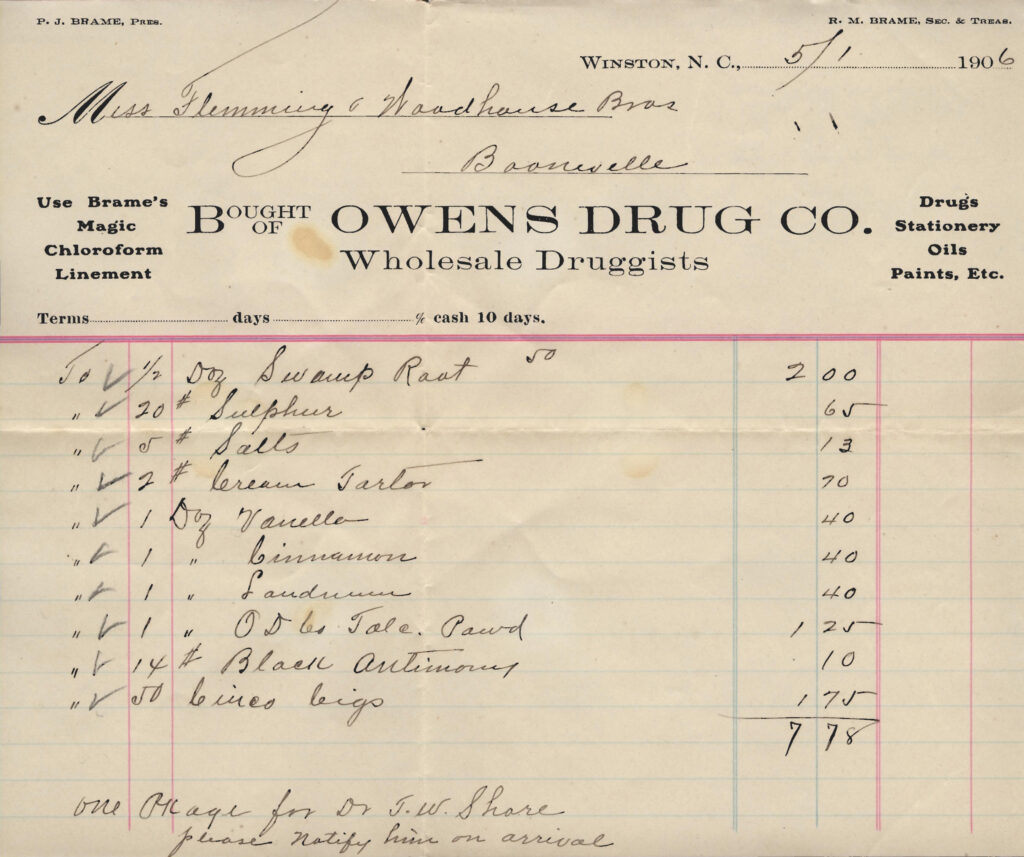 P. J. BRAME, PRES.
R. M. BRAME, SEC. & TREAS.
WINSTON, N. C., 5/1 1906
Mess Flemming & Woodhouse Bros
Booneville
Use Brame's
Magic
Chloroform
Linement
BOUGHT OF OWENS DRUG CO.
Wholesale Druggists
Drugs
Stationery
Oils
Paints, Etc.
Terms days % cash 10 days.
To ✓ 1/2 Doz Swamp Root 50 2 00
" ✓ 20 # Sulphur 65
" ✓ 5 # Salts 13
" ✓ 2 # Cream Tartor 70
" ✓ 1 Doz Vanella 40
" ✓ 1 " Cinnamon 40
" ✓ 1 " Laudnum 40
" ✓ 1 " O D Co Talc. Powd 1 25
" ✓ 14 # Black Antimony 10
" ✓ 50 Cinco Cigs 1 75
7 78
one Pkage for Dr T. W. Shore
please notify him on arrival